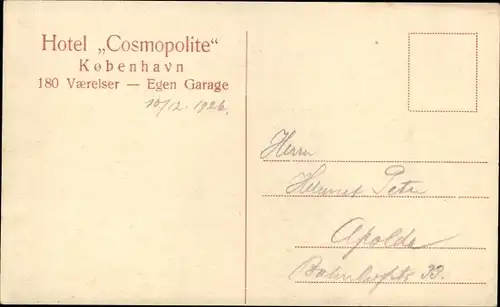 Hotel „Cosmopolite“
København
180 Værelser — Egen Garage
10/12. 1926.
Herrn
Helmut Petr
Apolda
Bahnhofstr 33.